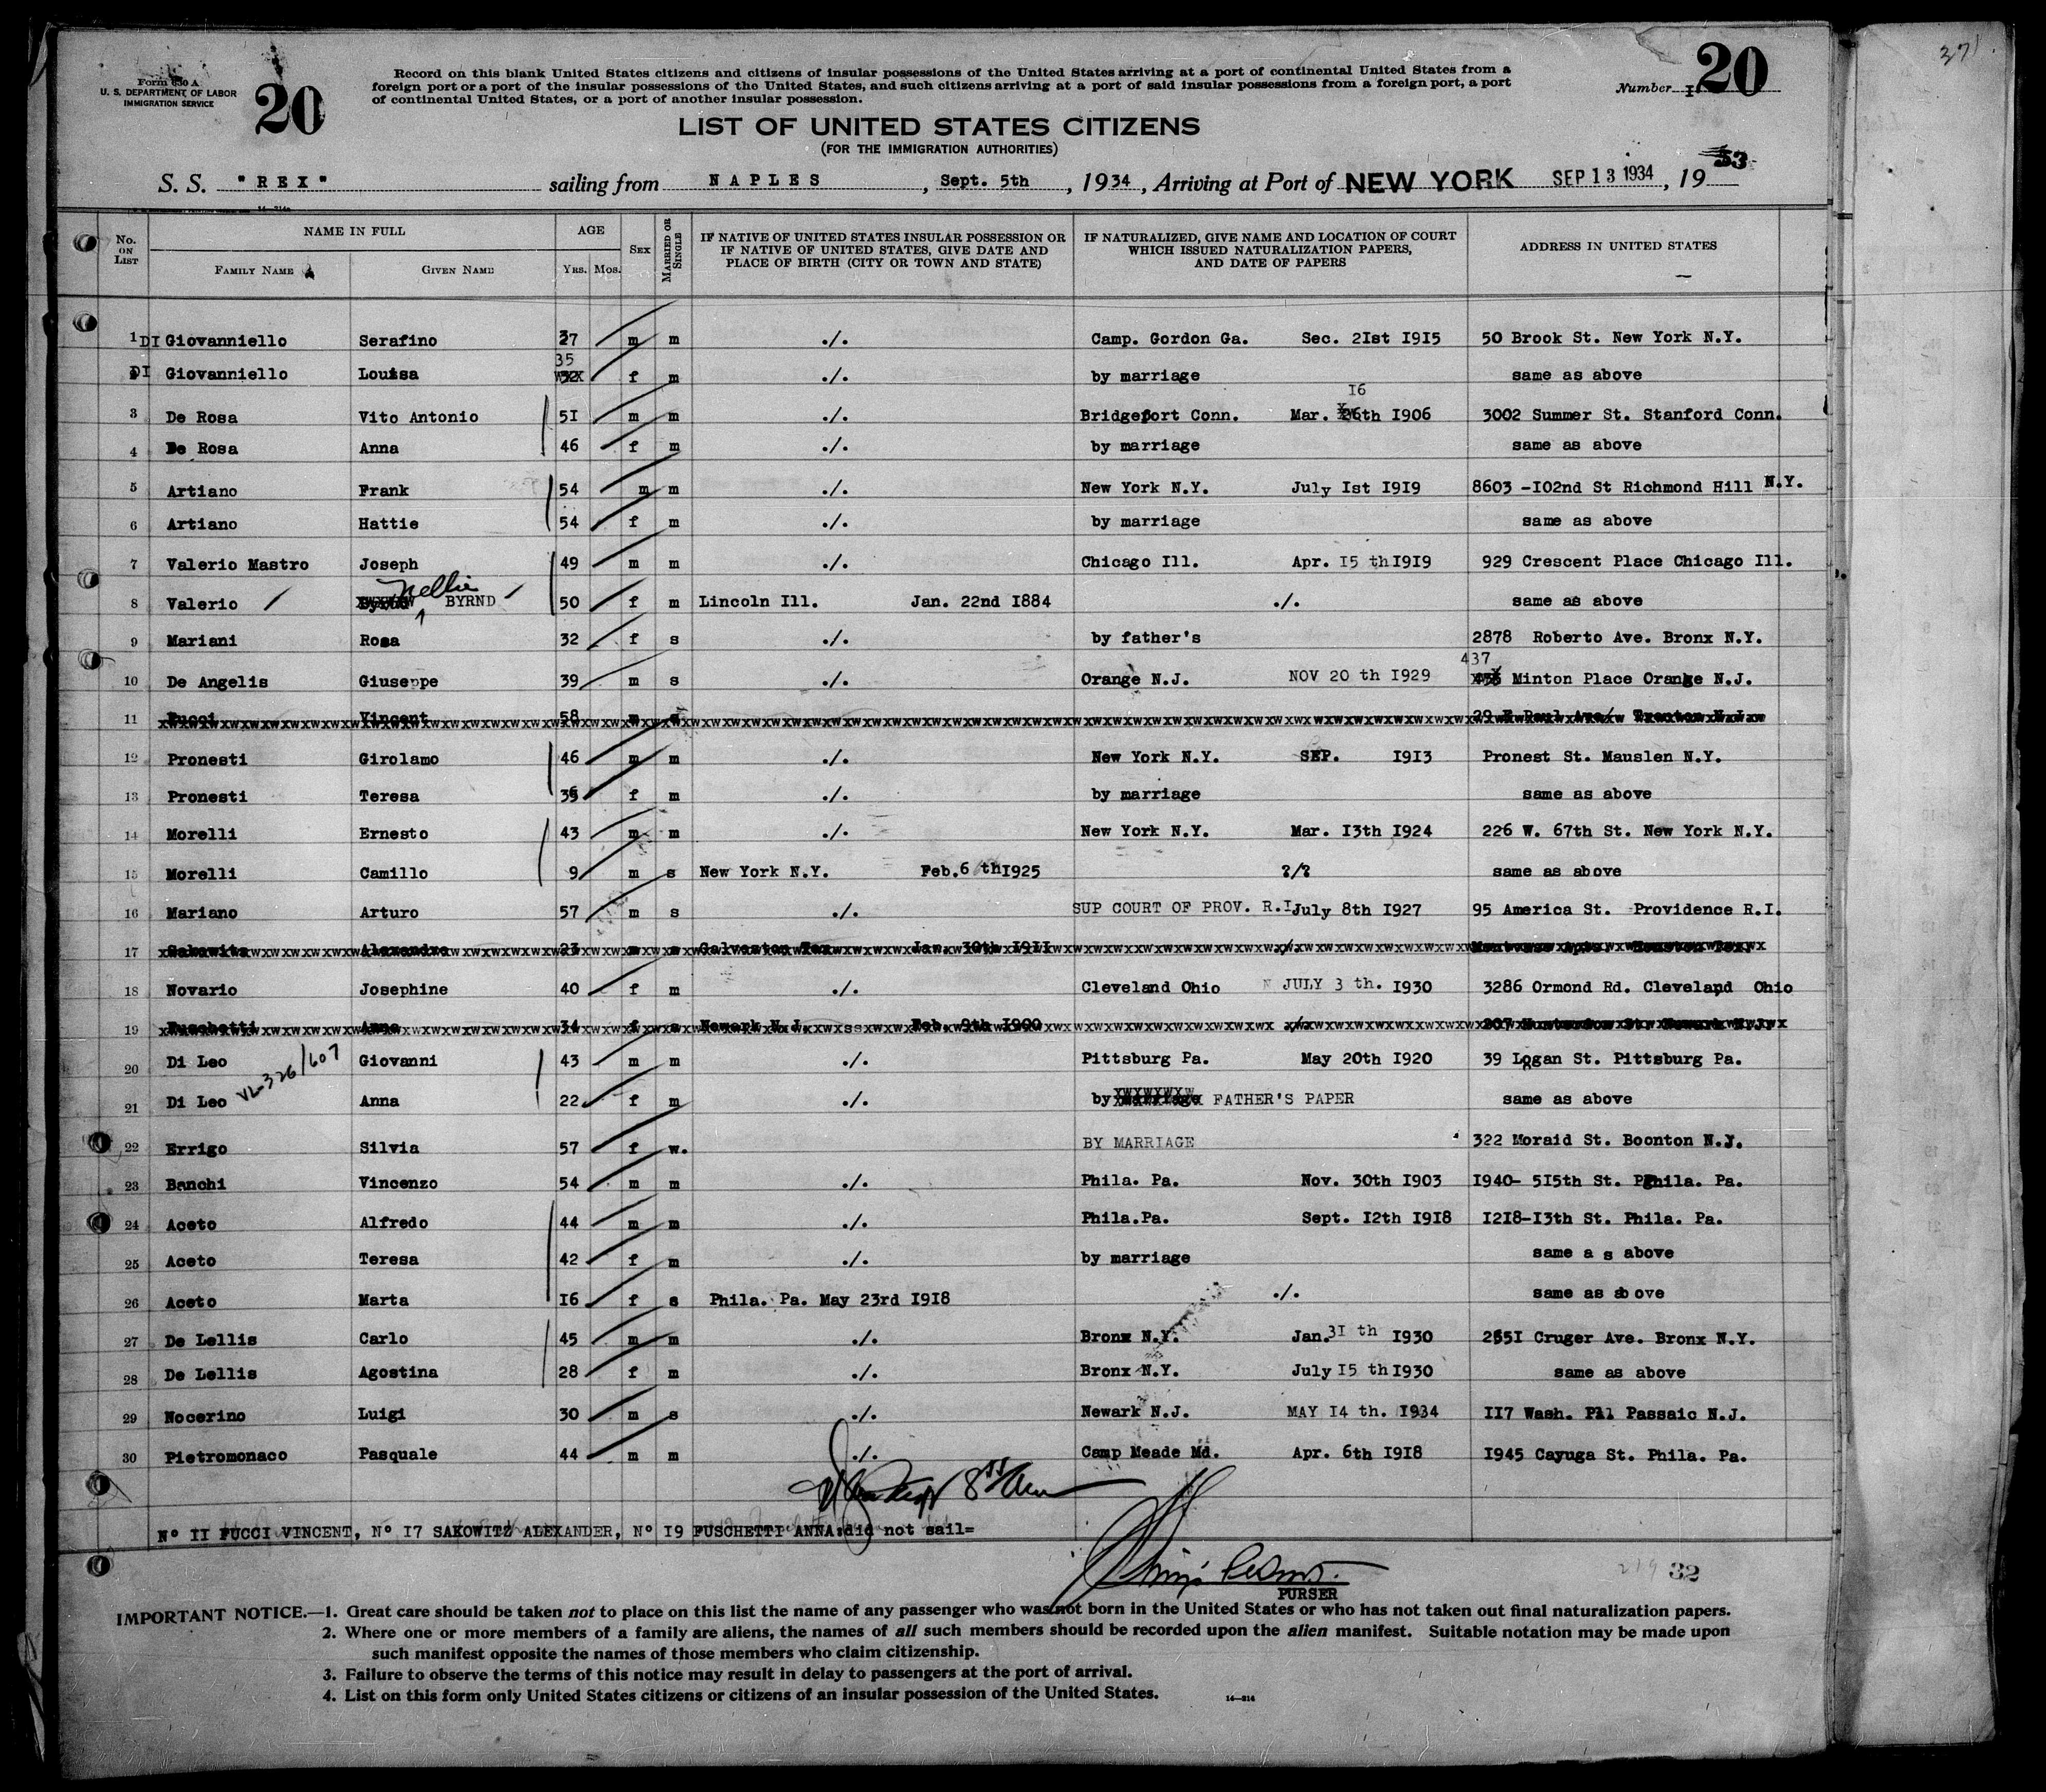 371
Form 630 A
U. S. DEPARTMENT OF LABOR
IMMIGRATION SERVICE
20
Record on this blank United States citizens and citizens of insular possessions of the United States arriving at a port of continental United States from a
foreign port or a port of the insular possessions of the United States, and such citizens arriving at a port of said insular possessions from a foreign port, a port
of continental United States, or a port of another insular possession.
Number I 20
LIST OF UNITED STATES CITIZENS
(FOR THE IMMIGRATION AUTHORITIES)
S. S. "REX" sailing from NAPLES, Sept. 5th, 1934, Arriving at Port of NEW YORK SEP 13 1934, 19 33
No. ON LIST NAME IN FULL AGE SEX MARRIED OR SINGLE IF NATIVE OF UNITED STATES INSULAR POSSESSION OR IF NATIVE OF UNITED STATES, GIVE DATE AND PLACE OF BIRTH (CITY OR TOWN AND STATE) IF NATURALIZED, GIVE NAME AND LOCATION OF COURT WHICH ISSUED NATURALIZATION PAPERS, AND DATE OF PAPERS ADDRESS IN UNITED STATES
FAMILY NAME GIVEN NAME YRS. MOS.
1 DI Giovanniello Serafino 37 m m ./. Camp. Gordon Ga. Sec. 2Ist I9I5 50 Brook St. New York N.Y.
35
DI Giovanniello Louisa f m ./. by marriage same as above
I6
3 De Rosa Vito Antonio 5I m m ./. Bridgeport Conn. Mar. 26th I906 3002 Summer St. Stanford Conn.
4 De Rosa Anna 46 f m ./. by marriage same as above
5 Artiano Frank 54 m m ./. New York N.Y. July Ist I9I9 8603 -I02nd St Richmond Hill N.Y.
6 Artiano Hattie 54 f m ./. by marriage same as above
7 Valerio Mastro Joseph 49 m m ./. Chicago Ill. Apr. I5 th I9I9 929 Crescent Place Chicago Ill.
Nellie
8 Valerio BYRND 50 f m Lincoln Ill. Jan. 22nd I884 ./. same as above
9 Mariani Rosa 32 f s ./. by father's 2878 Roberto Ave. Bronx N.Y.
437
10 De Angelis Giuseppe 39 m s ./. Orange N.J. NOV 20 th I929 Minton Place Orange N.J.
11 Fucci Vincent 58
12 Pronesti Girolamo 46 m m ./. New York N.Y. SEP. I9I3 Pronest St. Mauslen N.Y.
13 Pronesti Teresa 35 f m ./. by marriage same as above
14 Morelli Ernesto 43 m m ./. New York N.Y. Mar. I3th I924 226 W. 67th St. New York N.Y.
15 Morelli Camillo 9 m s New York N.Y. Feb. 6 th I925 ?/? same as above
16 Mariano Arturo 57 m s ./. SUP COURT OF PROV. R.I. July 8th I927 95 America St. Providence R.I.
17 Sakowitz Alexandre 23 m s Galveston Tex Jan. 30th I9II
18 Novario Josephine 40 f m ./. Cleveland Ohio JULY 3 th. I930 3286 Ormond Rd. Cleveland Ohio
19 Fuschetti Anna 34 f Newark N.J. Feb. 9th I900
20 Di Leo Giovanni 43 m m ./. Pittsburg Pa. May 20th I920 39 Logan St. Pittsburg Pa.
VL-326/607
21 Di Leo Anna 22 f m ./. by marriage FATHER'S PAPER same as above
22 Errigo Silvia 57 f w. BY MARRIAGE 322 Moraid St. Boonton N.J.
23 Banchi Vincenzo 54 m m ./. Phila. Pa. Nov. 30th I903 I940- 5I5th St. Phila. Pa.
24 Aceto Alfredo 44 m m ./. Phila.Pa. Sept. I2th I9I8 I2I8-I3th St. Phila. Pa.
25 Aceto Teresa 42 f m ./. by marriage same a s above
26 Aceto Marta I6 f s Phila. Pa. May 23rd I9I8 ./. same as above
27 De Lellis Carlo 45 m m ./. Bronx N.Y. Jan. 3I th I930 2651 Cruger Ave. Bronx N.Y.
28 De Lellis Agostina 28 f m ./. Bronx N.Y. July I5 th I930 same as above
29 Nocerino Luigi 30 m s ./. Newark N.J. MAY I4 th. I934 II7 Wash. Pll Passaic N.J.
30 Pietromonaco Pasquale 44 m m ./. Camp Meade Md. Apr. 6th I9I8 I945 Cayuga St. Phila. Pa.
Nº II FUCCI VINCENT, Nº I7 SAKOWITZ ALEXANDER, Nº I9 FUSCHETTI ANNA:did not sail=
219 32
PURSER
IMPORTANT NOTICE.—1. Great care should be taken not to place on this list the name of any passenger who was not born in the United States or who has not taken out final naturalization papers.
2. Where one or more members of a family are aliens, the names of all such members should be recorded upon the alien manifest. Suitable notation may be made upon
such manifest opposite the names of those members who claim citizenship.
3. Failure to observe the terms of this notice may result in delay to passengers at the port of arrival.
4. List on this form only United States citizens or citizens of an insular possession of the United States.
14—314